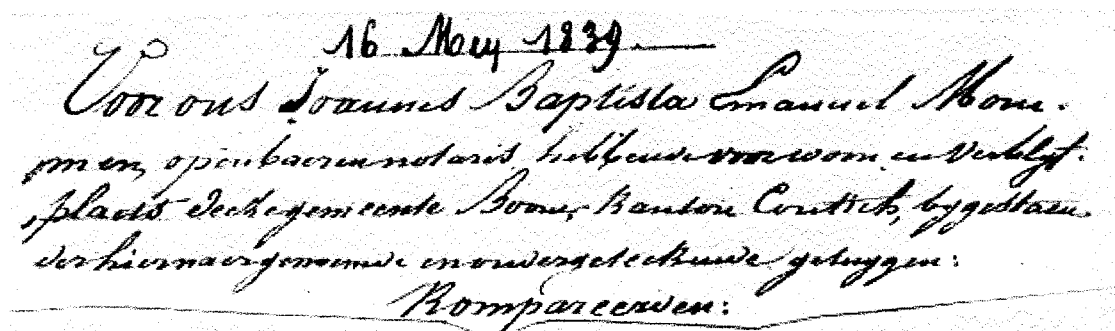 16 Mey 1839.
Voor ons Joannes Baptista Emanuel Mom-
men, openbaeren notaris hebbende voor woon en verblyf-
plaets de gemeente Boom, Kanton Contich, bygestaen
der hiernaergenoemde en ondergeteekende getuygen:
Kompareerden: